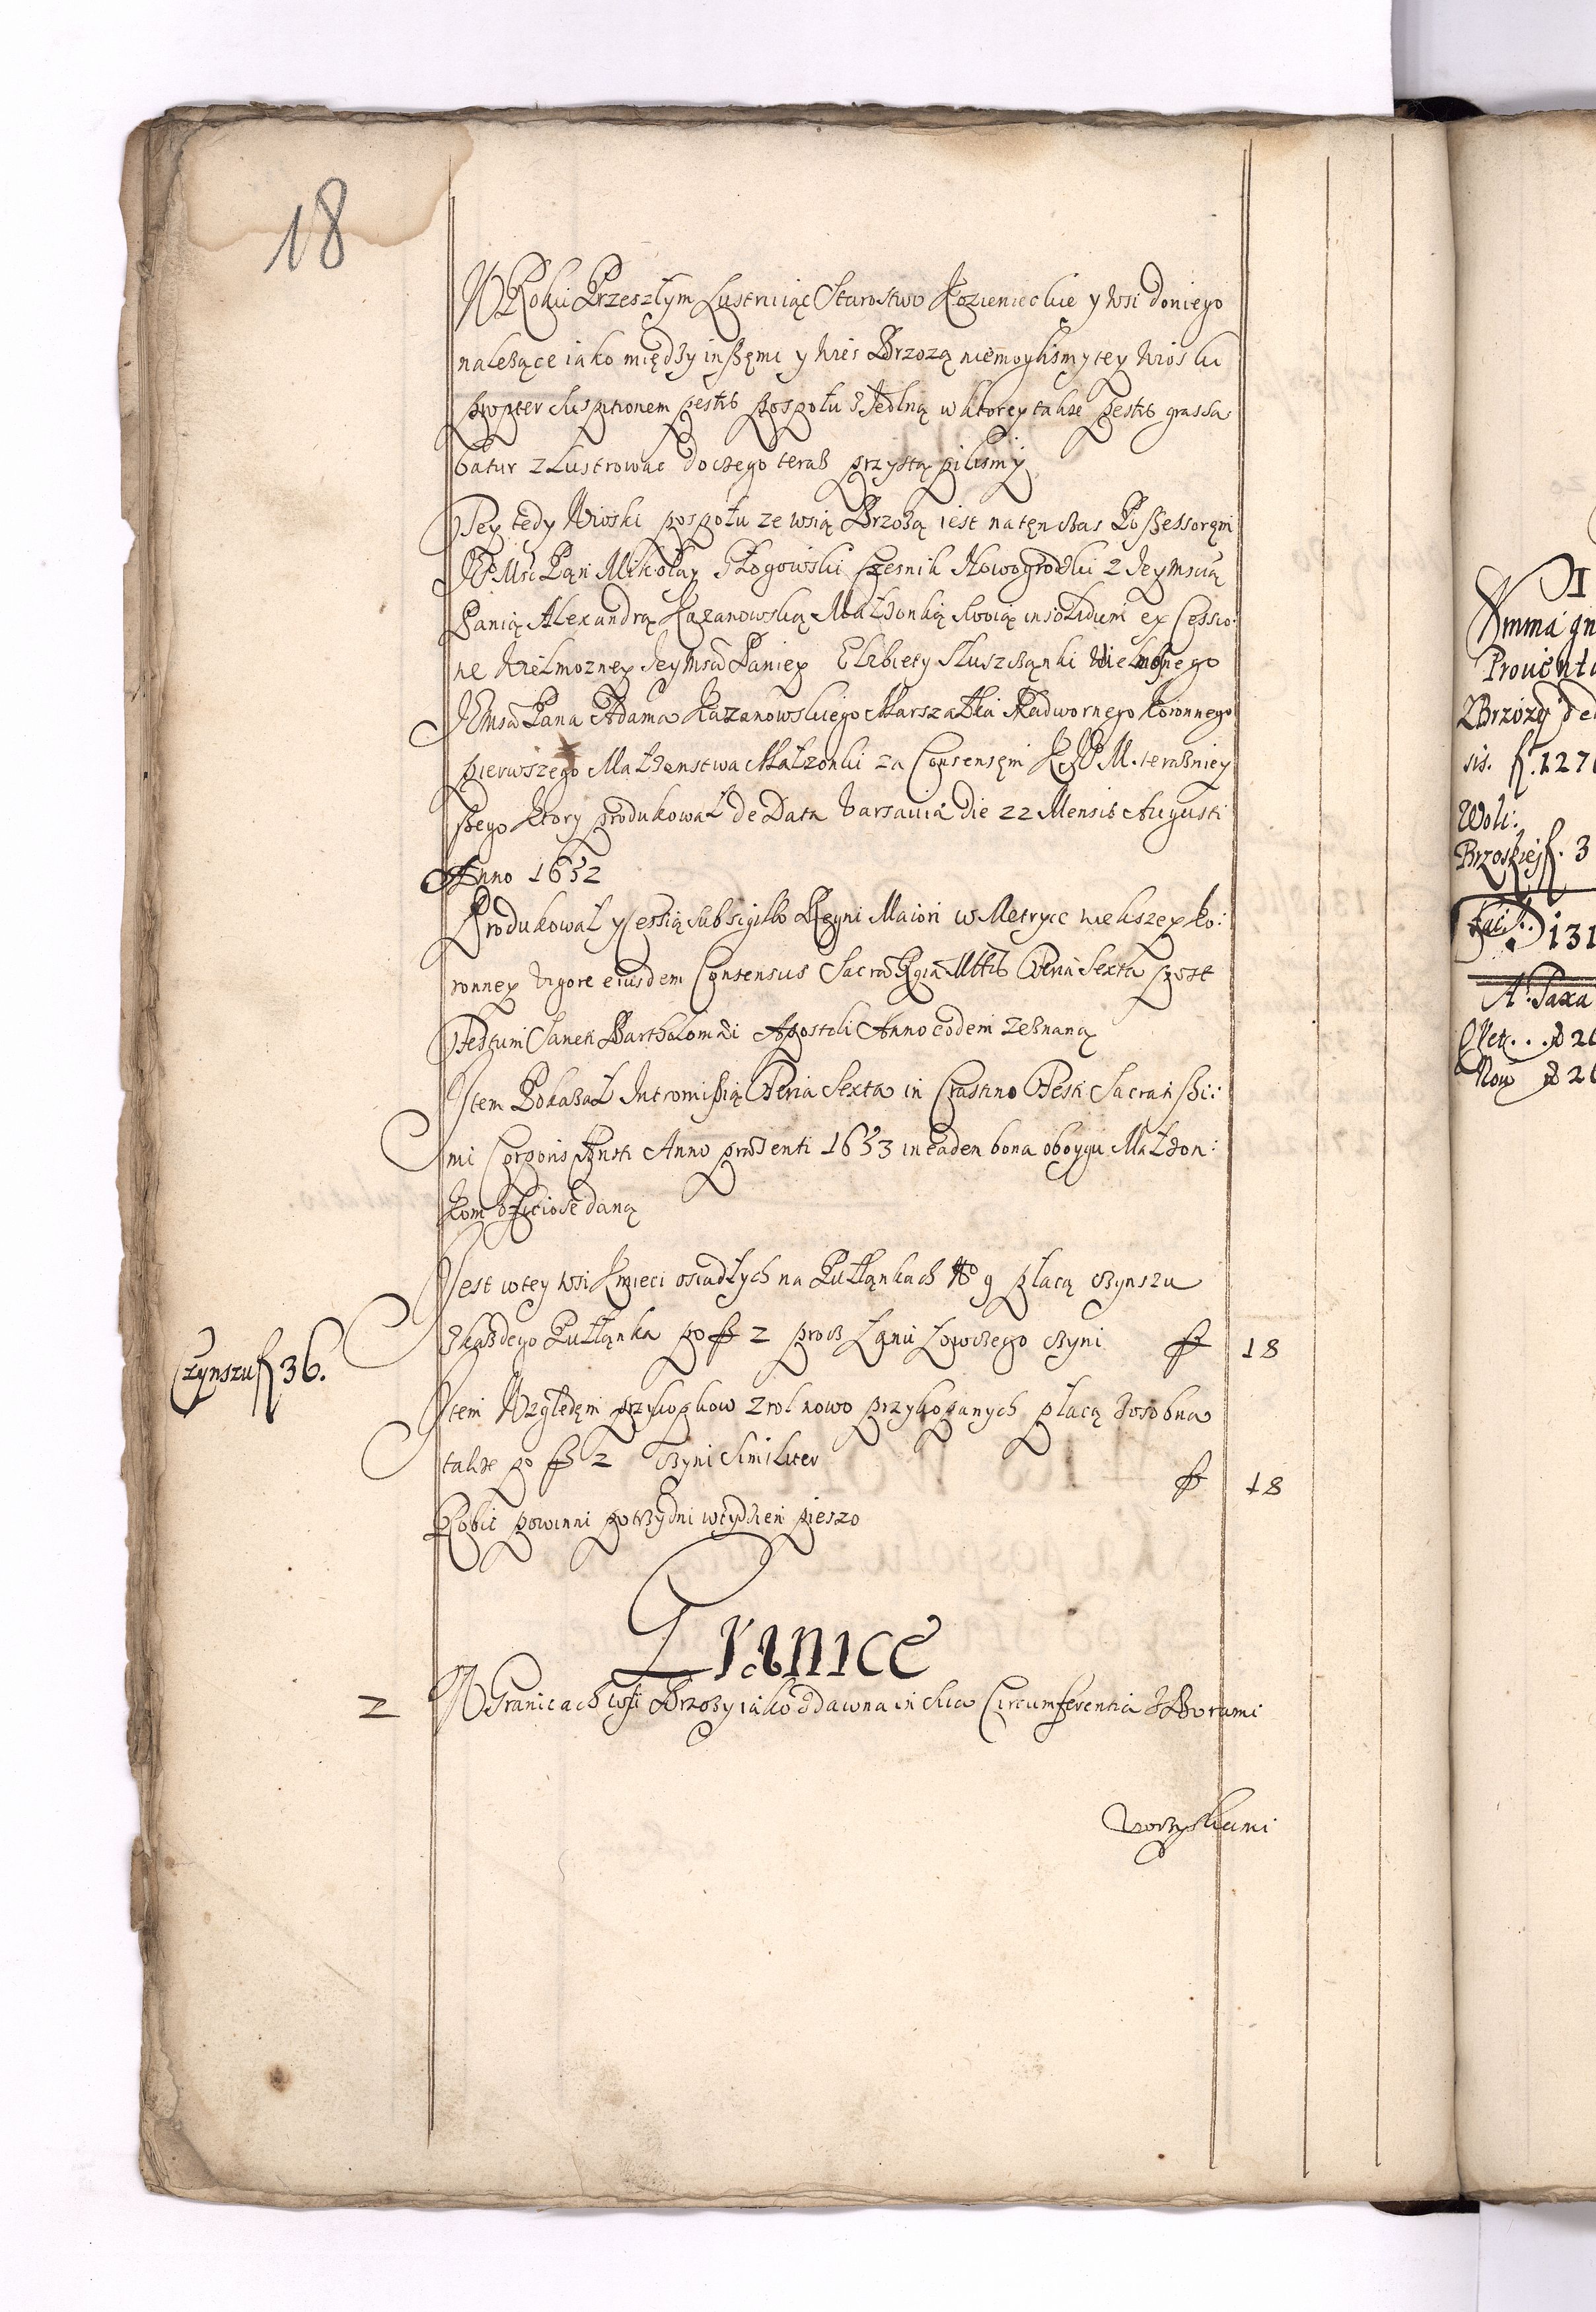 18
W Roku Przeszłym Lustruiąc Starostwo Kozienieckie y wsi doniego
należące iako między inszęmi y wies Brzozą niemoglismy tey wioski
propter suspitionem pestis pospołu z Jedlną w ktorey także pestis grassa
batur zLustrowac do czego teraz przystąpilismy
Tey tedy Wioski pospołu ze wsią Brzozą iest natęn czas Possessoręm
JE Msc Pąn Mikołay Głogowski Czesnik Nowogrodzki z Jeymscią
Panią Alexandrą Kazanowską Małżonką swoią insolidum ex Cessio:
ne Wielmozney Jeymsci Paniey Elzbiety Słuszcząnki Wielmożnego
JEmsci Pana Adama Kazanowskiego Marszałka Nadwornego koronnego
pierwszego Małżenstwa Małzonki za Consensęm K J M. terazniey
szego ktory produkował de Data Varsaviæ die 22 Mensis Augusti
Anno 1652
Produkował y Cessią sub sigillo Regni Maiori w Metryce wiekszey ko:
ronney vigore eiusdem Consensus Sacræ Rgiæ Mttis Feria Sexta post
Festum Sancti Bartholomæi Apostoli Anno eodem zeznaną
Item Pokazał Intromissią Feria Sexta in Crastino Festi Sacratissi:
mi Corporis Xpisti Anno præsenti 1653 in eadem bona oboygu Małżon:
kom officiose daną
Jest w tey wsi Kmieci osiadłych na Pułłąnkach No 9 płacą czynszu
Zkażdego Pułłąnka po fl 2 procz Łąnu Łowczego czyni fl 18
Czynszu fl 36.
Item Względęm przykopkow z rol nowo przykopanych płacą zosobna
także po fl 2 czyni similiter fl 18
Robic powinni po trzy dni w tydzien pieszo
Granice
2 W Granicach wsi Brzozy iako zdawna in sua Circumferentia z Borami
Uorzyskami
I
Summa gn
Prouentu
ZBrzozy ded
sis. f. 127
Woli:
Brzoskiej f. 3
facit. 131
A. Taxa
Vet. . . ad 26
Nou ad 26